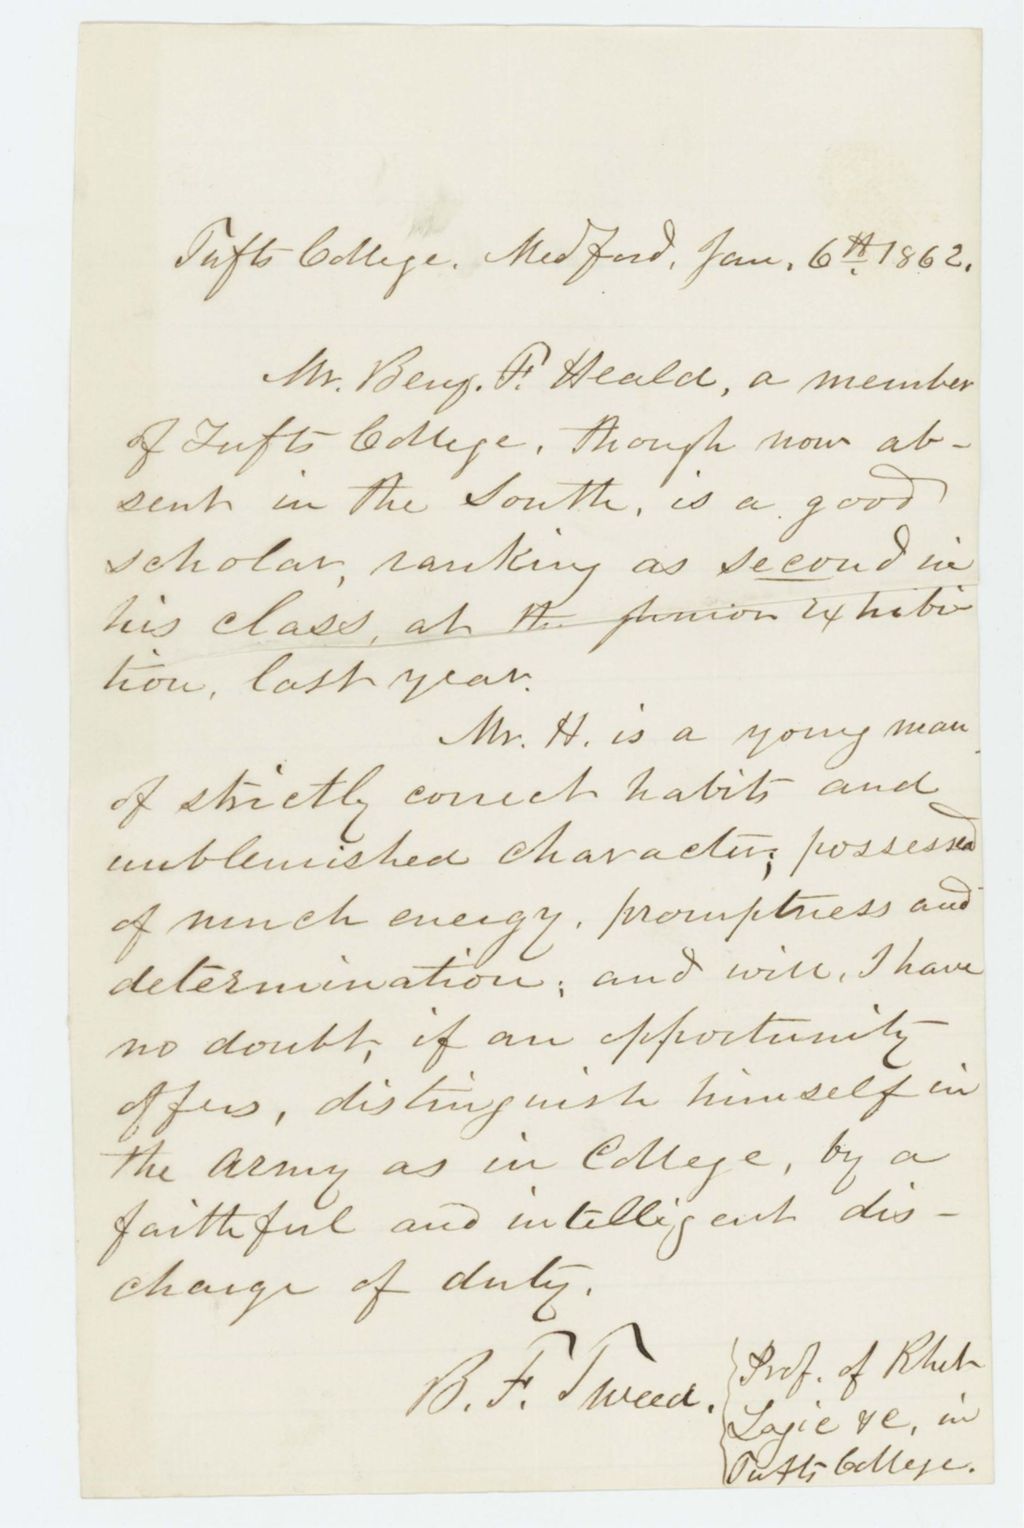 Tufts College, Medford, Jan. 6th 1862.
Mr. Benj. F. Heald, a member
of Tufts College, though now ab-
sent in the South, is a good
scholar, ranking as second in
his class, at the Junior Exhibi-
tion, last year.
Mr. H. is a young man
of strictly correct habits and
unblemished character; possessed
of much energy, promptness and
determination; and will, I have
no doubt, if an opportunity
offers, distinguish himself in
the Army as in College, by a
faithful and intelligent dis-
charge of duty.
B. F. Tweed.
Prof. of Rhet
Logic &c, in
Tufts College.